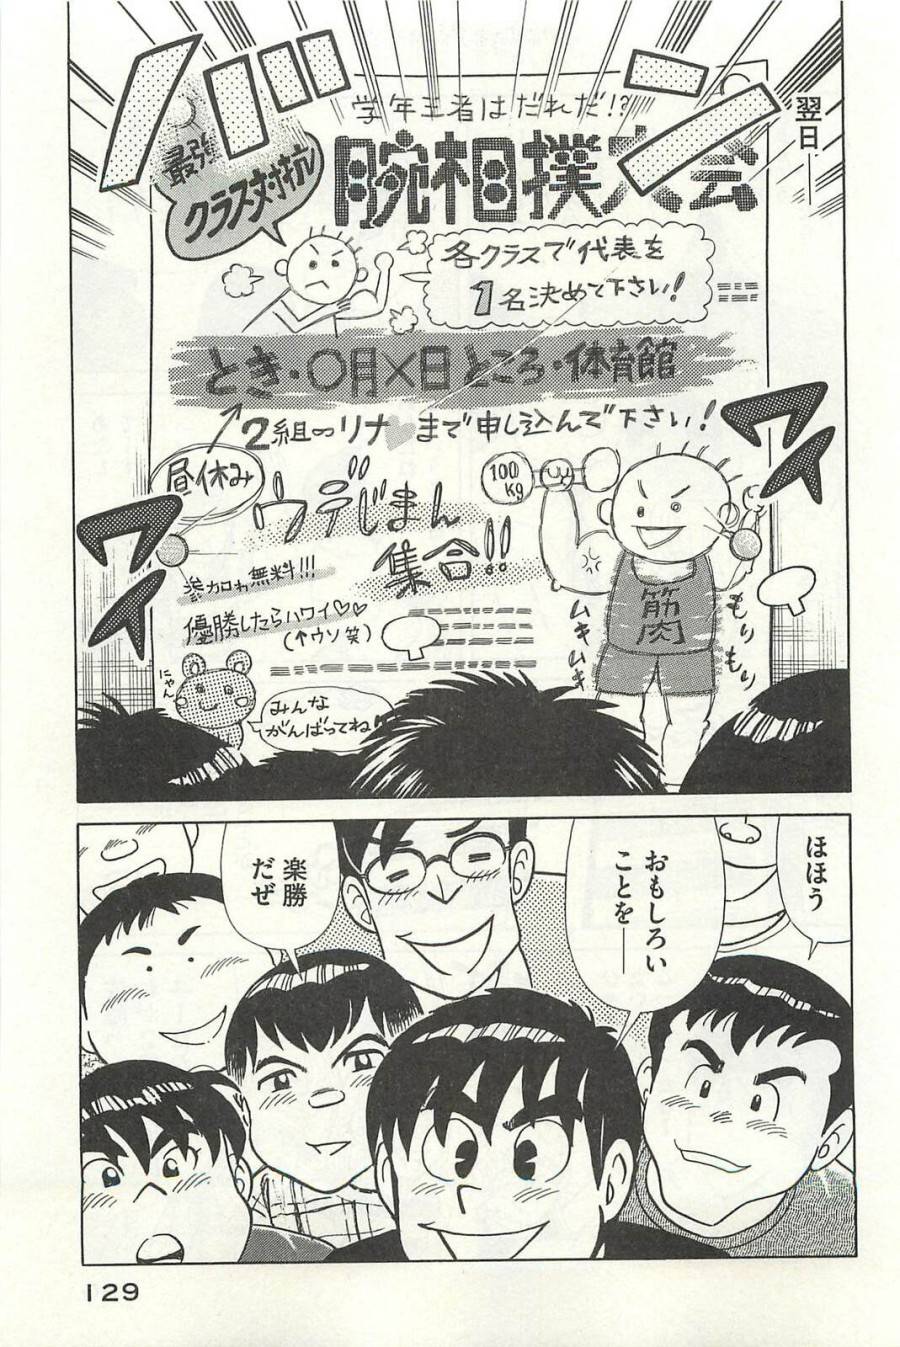 翌日――
バーン
学年王者はだれだ!?
最強
クラス対抗
腕相撲大会
各クラスで代表を
1名決めて下さい!
とき・〇月×日 ところ・体育館
2組のリナ♥まで申し込んで下さい!
昼休み
ウデじまん
集合!!
100
kg
参加わ無料!!!
優勝したらハワイ♡♡
(↑ウソ笑)
筋肉
ムキムキ
もりもり
にゃん
みんな
がんばってね
ワイ
ワイ
ほほう
おもしろい
ことを――
楽勝
だぜ
129